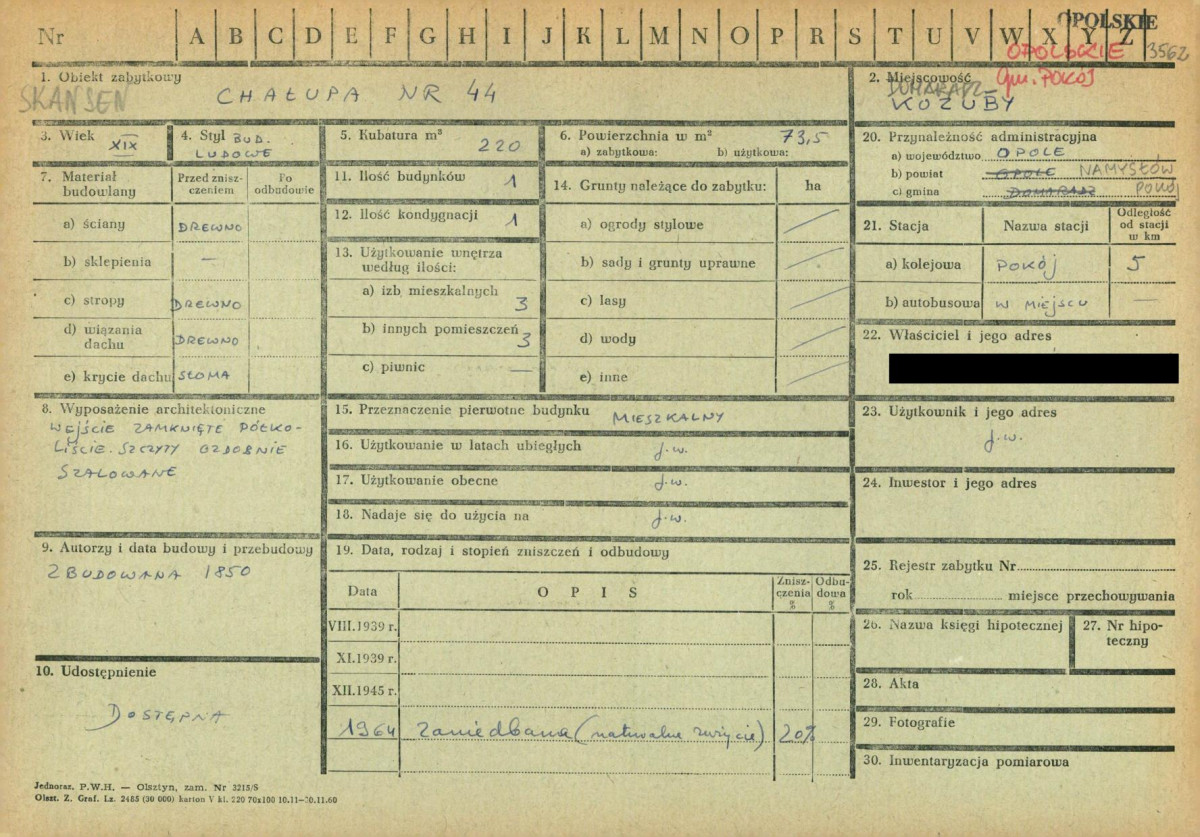 Nr A B C D E F G H I J K L M N O P R S T U V W X Y Z OPOLSKIE
OPOLSKIE 3562
1. Obiekt zabytkowy
SKANSEN CHAŁUPA NR 44
2. Miejscowość gm. POKÓJ
KOZUBY
3. Wiek XIX
4. Styl BUD. LUDOWE
5. Kubatura m³ 220
6. Powierzchnia w m² 73,5
a) zabytkowa: b) użytkowa:
7. Materiał budowlany
Przed zniszczeniem
Po odbudowie
a) ściany DREWNO
b) sklepienia —
c) stropy DREWNO
d) wiązania dachu DREWNO
e) krycie dachu SŁOMA
11. Ilość budynków 1
12. Ilość kondygnacji 1
13. Użytkowanie wnętrza według ilości:
a) izb mieszkalnych 3
b) innych pomieszczeń 3
c) piwnic —
14. Grunty należące do zabytku: ha
a) ogrody stylowe
b) sady i grunty uprawne
c) lasy
d) wody
e) inne
20. Przynależność administracyjna
a) województwo OPOLE
b) powiat OPOLE NAMYSŁÓW
c) gmina DOMARADZ POKÓJ
21. Stacja Nazwa stacji Odległość od stacji w km
a) kolejowa POKÓJ 5
b) autobusowa W MIEJSCU —
22. Właściciel i jego adres
8. Wyposażenie architektoniczne
WEJŚCIE ZAMKNIĘTE PÓŁKO-
LIŚCIE. SZCZYTY OZDOBNIE
SZALOWANE
15. Przeznaczenie pierwotne budynku MIESZKALNY
16. Użytkowanie w latach ubiegłych j.w.
17. Użytkowanie obecne j.w.
18. Nadaje się do użycia na j.w.
23. Użytkownik i jego adres
j.w.
24. Inwestor i jego adres
9. Autorzy i data budowy i przebudowy
ZBUDOWANA 1850
10. Udostępnienie
DOSTĘPNA
19. Data, rodzaj i stopień zniszczeń i odbudowy
Data OPIS Zniszczenia % Odbudowa %
VIII.1939 r.
XI.1939 r.
XII.1945 r.
1964 Zaniedbana (naturalne zużycie) 20%
25. Rejestr zabytku Nr
rok miejsce przechowywania
26. Nazwa księgi hipotecznej
27. Nr hipoteczny
28. Akta
29. Fotografie
30. Inwentaryzacja pomiarowa
Jednoraz. P.W.H. — Olsztyn, zam. Nr 3215/S
Olszt. Z. Graf. Lz. 2485 (30 000) karton V kl. 220 70x100 10.11—30.11.60